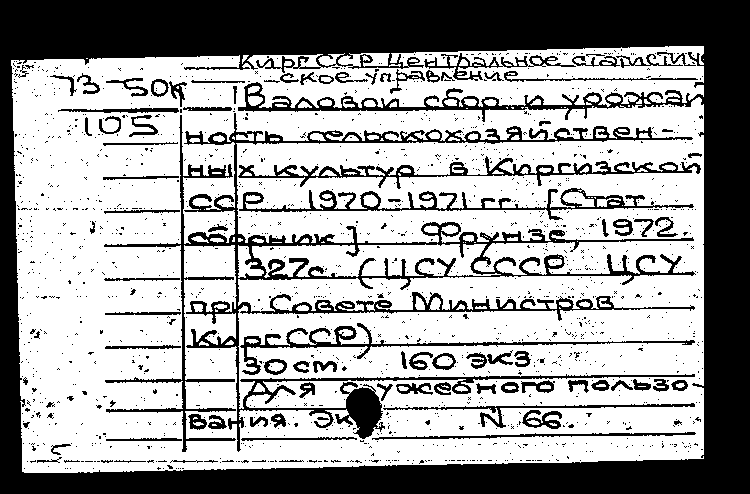 КиргССР Центральное статистиче
ское управление
73-50к
105
Валовой сбор и урожай
ность сельскохозяйствен-
ных культур в Киргизской
ССР. 1970-1971 гг. [Стат.
сборник]. Фрунзе, 1972.
327с. (ЦСУ СССР. ЦСУ
при Совете Министров
КиргССР).
30 см. 160 экз.
Для служебного пользо-
вания. Экз N 66.